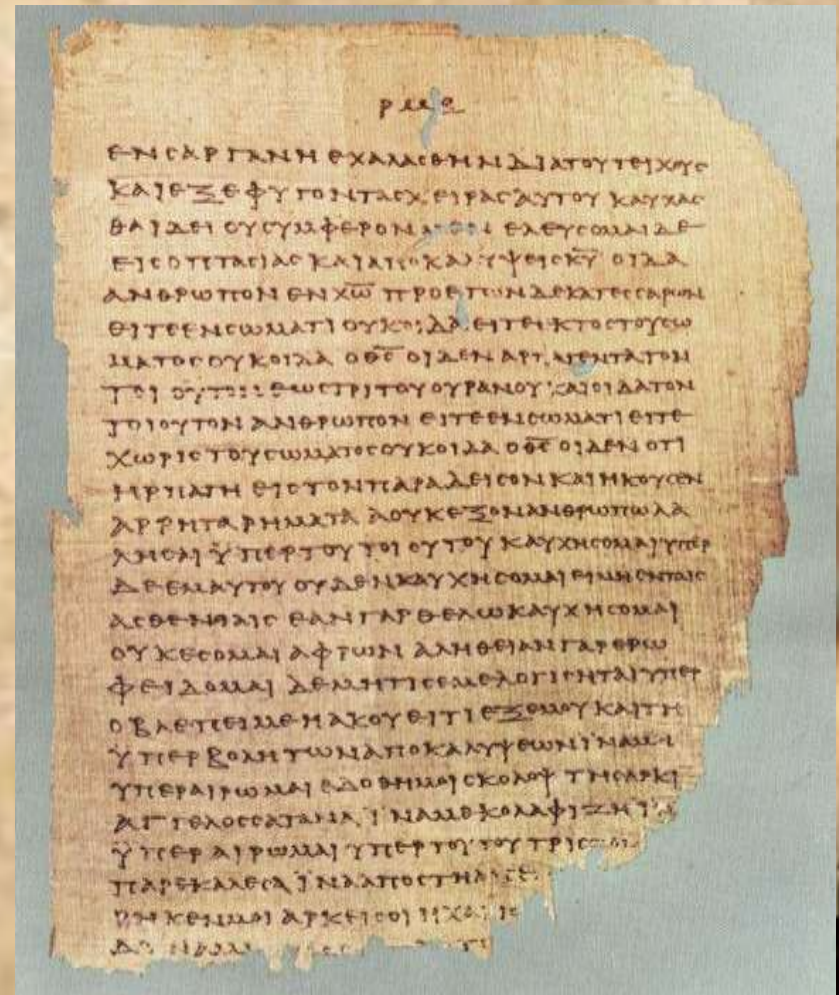 ρμε
ΕΝΣΑΡΓΑΝΗΕΧΑΛΑΣΘΗΝΔΙΑΤΟΥΤΕΙΧΟΥΣ
ΚΑΙΕΞΕΦΥΓΟΝΤΑΣΧΕΙΡΑΣΑΥΤΟΥΚΑΥΧΑΣ
ΘΑΙΔΕΙΟΥΣΥΜΦΕΡΟΝΜΕΝΕΛΕΥΣΟΜΑΙΔΕ
ΕΙΣΟΠΤΑΣΙΑΣΚΑΙΑΠΟΚΑΛΥΨΕΙΣΚ̅Υ̅ΟΙΔΑ
ΑΝΘΡΩΠΟΝΕΝΧ̅Ω̅ΠΡΟΕΤΩΝΔΕΚΑΤΕΣΣΑΡΩΝ
ΕΙΤΕΕΝΣΩΜΑΤΙΟΥΚΟΙΔΑΕΙΤΕΕΚΤΟΣΤΟΥΣΩ
ΜΑΤΟΣΟΥΚΟΙΔΑΟΘ̅Σ̅ΟΙΔΕΝΑΡΠΑΓΕΝΤΑΤΟΝ
ΤΟΙΟΥΤΟΝΕΩΣΤΡΙΤΟΥΟΥΡΑΝΟΥΚΑΙΟΙΔΑΤΟΝ
ΤΟΙΟΥΤΟΝΑΝΘΡΩΠΟΝΕΙΤΕΕΝΣΩΜΑΤΙΕΙΤΕ
ΧΩΡΙΣΤΟΥΣΩΜΑΤΟΣΟΥΚΟΙΔΑΟΘ̅Σ̅ΟΙΔΕΝΟΤΙ
ΗΡΠΑΓΗΕΙΣΤΟΝΠΑΡΑΔΕΙΣΟΝΚΑΙΗΚΟΥΣΕΝ
ΑΡΡΗΤΑΡΗΜΑΤΑΑΟΥΚΕΞΟΝΑΝΘΡΩΠΩΛΑ
ΛΗΣΑΙΫΠΕΡΤΟΥΤΟΙΟΥΤΟΥΚΑΥΧΗΣΟΜΑΙΥΠΕΡ
ΔΕΕΜΑΥΤΟΥΟΥΔΕΝΚΑΥΧΗΣΟΜΑΙΕΙΜΗΕΝΤΑΙΣ
ΑΣΘΕΝΕΙΑΙΣΕΑΝΓΑΡΘΕΛΩΚΑΥΧΗΣΟΜΑΙ
ΟΥΚΕΣΟΜΑΙΑΦΡΩΝΑΛΗΘΕΙΑΝΓΑΡΕΡΩ
ΦΕΙΔΟΜΑΙΔΕΜΗΤΙΣΕΜΕΛΟΓΙΣΗΤΑΙΥΠΕΡ
ΟΒΛΕΠΕΙΜΕΗΑΚΟΥΕΙΤΙΕΞΕΜΟΥΚΑΙΤΗ
ΫΠΕΡΒΟΛΗΤΩΝΑΠΟΚΑΛΥΨΕΩΝΪΝΑΜΗ
ΥΠΕΡΑΙΡΩΜΑΙΕΔΟΘΗΜΟΙΣΚΟΛΟΨΤΗΣΑΡΚΙ
ΑΓΓΕΛΟΣΣΑΤΑΝΑΪΝΑΜΕΚΟΛΑΦΙΖΗΪΝΑ
ΫΠΕΡΑΙΡΩΜΑΙΥΠΕΡΤΟΥΤΟΥΤΡΙΣ
ΠΑΡΕΚΑΛΕΣΑΪΝΑΑΠΟΣΤΗΑΠΕ
ΡΗΚΕΝΜΟΙΑΡΚΕΙΣΟΙΗΧΑΡΙΣ